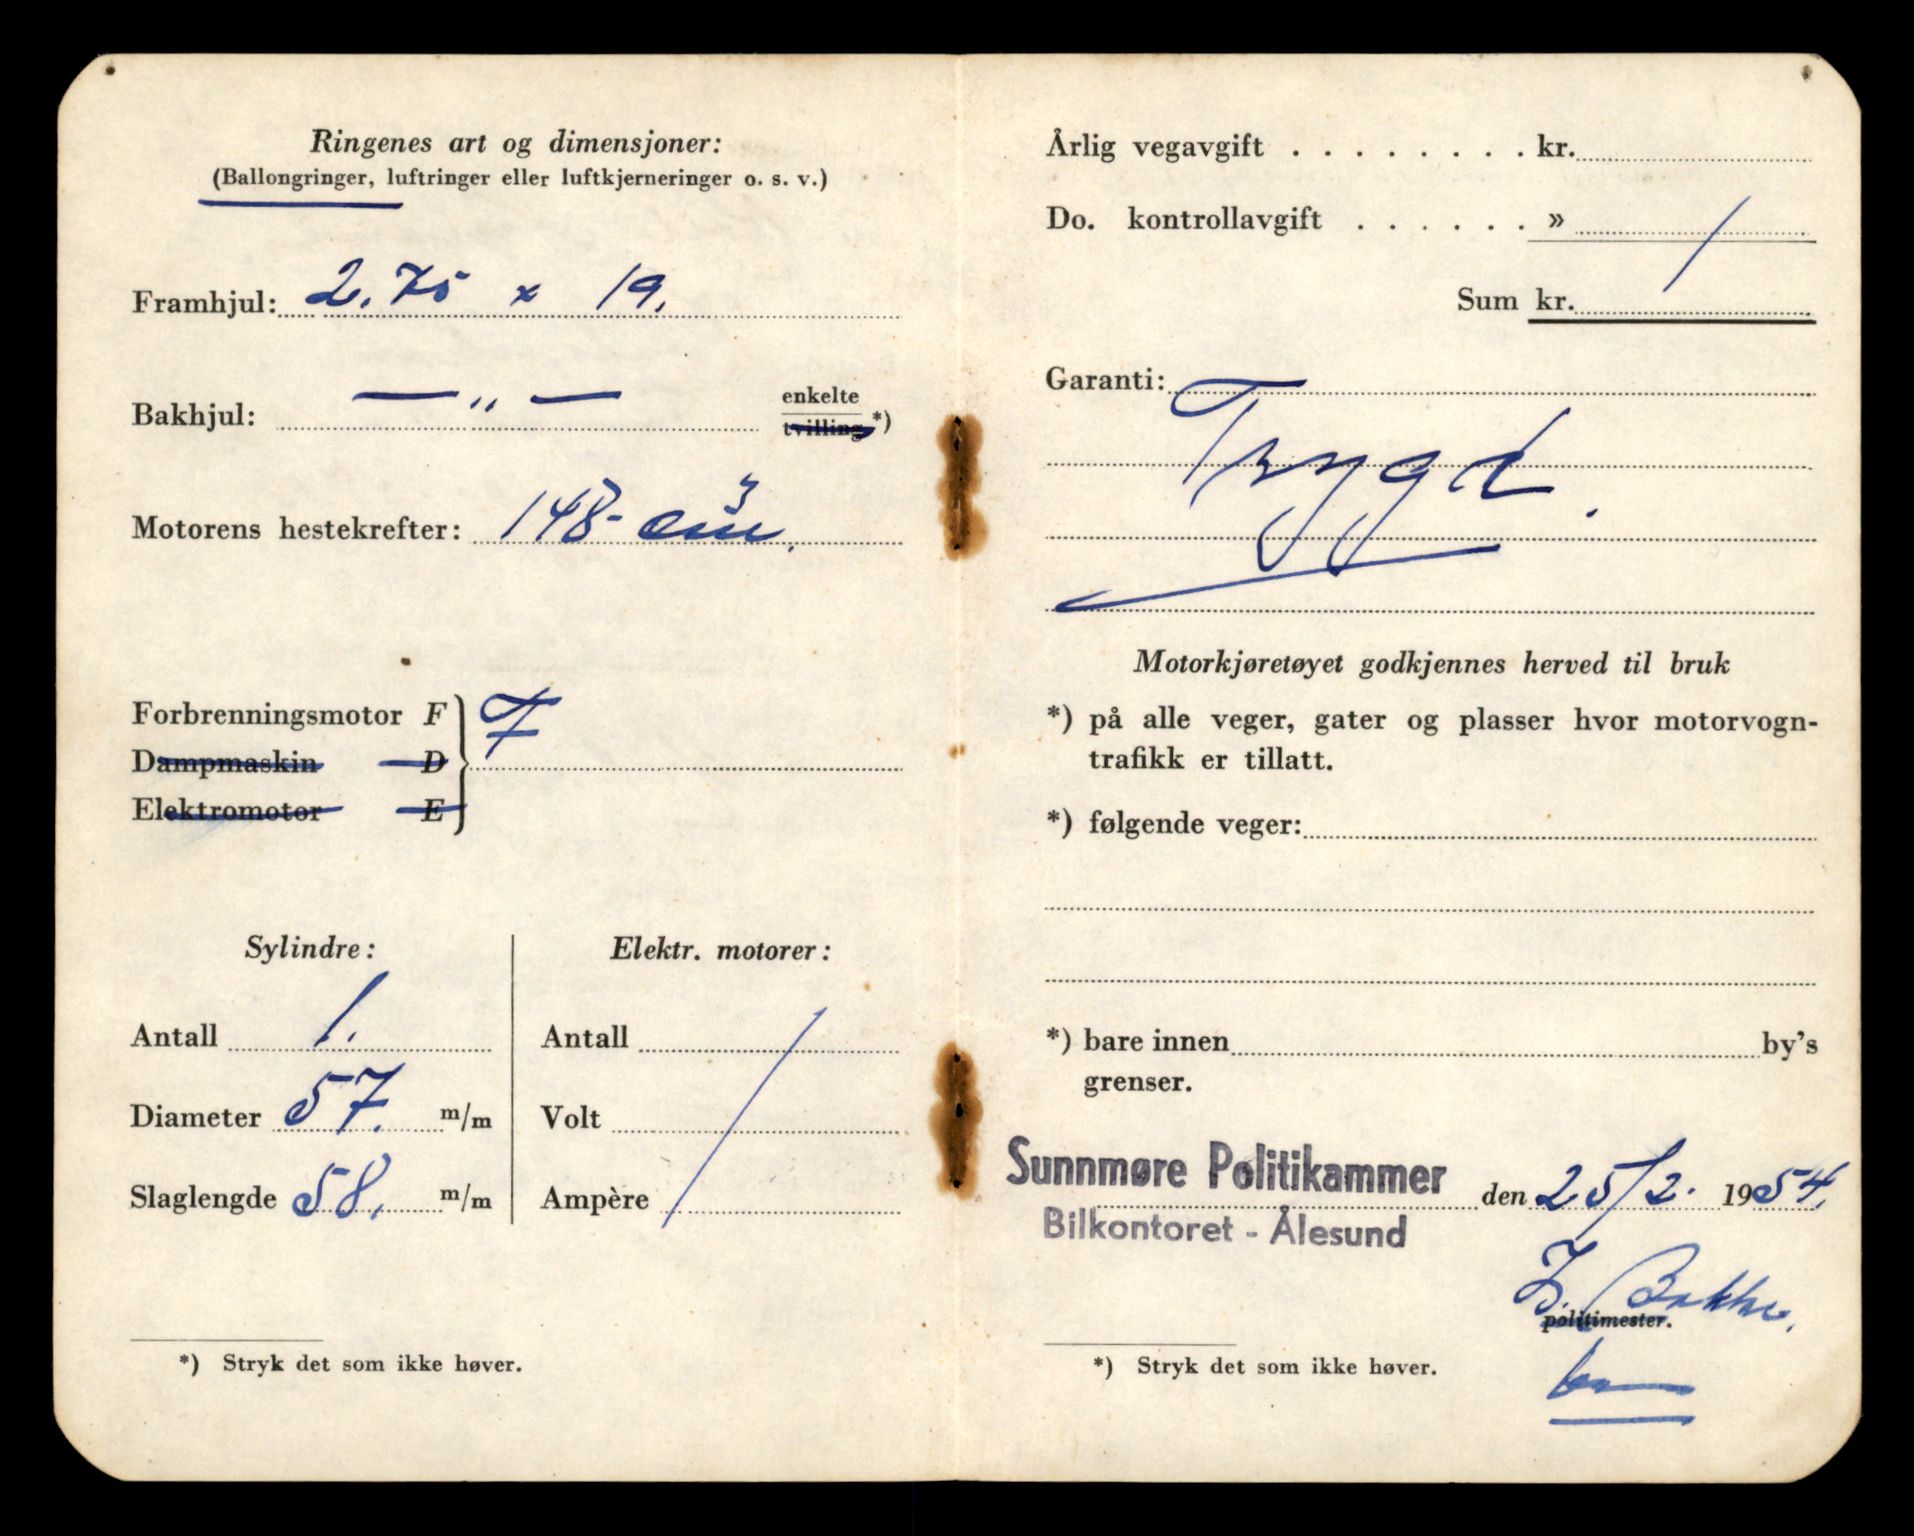 Ringenes art og dimensjoner:
(Ballongringer, luftringer eller luftkjerneringer o. s. v.)
Framhjul: 2.75 x 19.
Bakhjul: — „ — enkelte
tvilling *)
Motorens hestekrefter: 148 - cm³.
Forbrenningsmotor F F
Dampmaskin D
Elektromotor E
Sylindre:
Antall 1.
Diameter 57. m/m
Slaglengde 58. m/m
Elektr. motorer:
Antall
Volt
Ampère
*) Stryk det som ikke høver.
Årlig vegavgift . . . . . . . . kr.
Do. kontrollavgift . . . . . . »
Sum kr.
Garanti:
Trygd.
Motorkjøretøyet godkjennes herved til bruk
*) på alle veger, gater og plasser hvor motorvogn-
trafikk er tillatt.
*) følgende veger:
*) bare innen by's
grenser.
Sunnmøre Politikammer den 25/2. 1954.
Bilkontoret - Ålesund
Bakke.
politimester.
*) Stryk det som ikke høver.